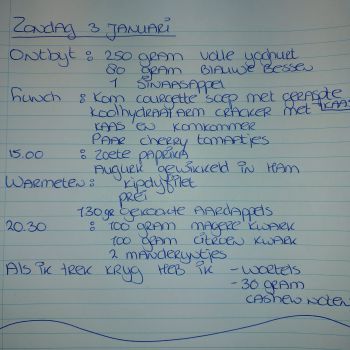 Zondag 3 januari
Ontbyt : 250 gram volle yoghurt
80 gram blauwe bessen
1 sinaasappel
Lunch : Kom courgette soep met geraspte kaas
koolhydraatarm cracker met
kaas en komkommer
paar cherry tomaatjes
15.00 : Zoete paprika
Augurk gewikkeld in ham
Warmeten : Kipdyfilet
prei
130 gr gekookte aardappels
20.30 : 100 gram magere kwark
100 gram citroen kwark
2 manderyntjes
Als ik trek kryg heb ik - wortels
- 30 gram
cashew noten